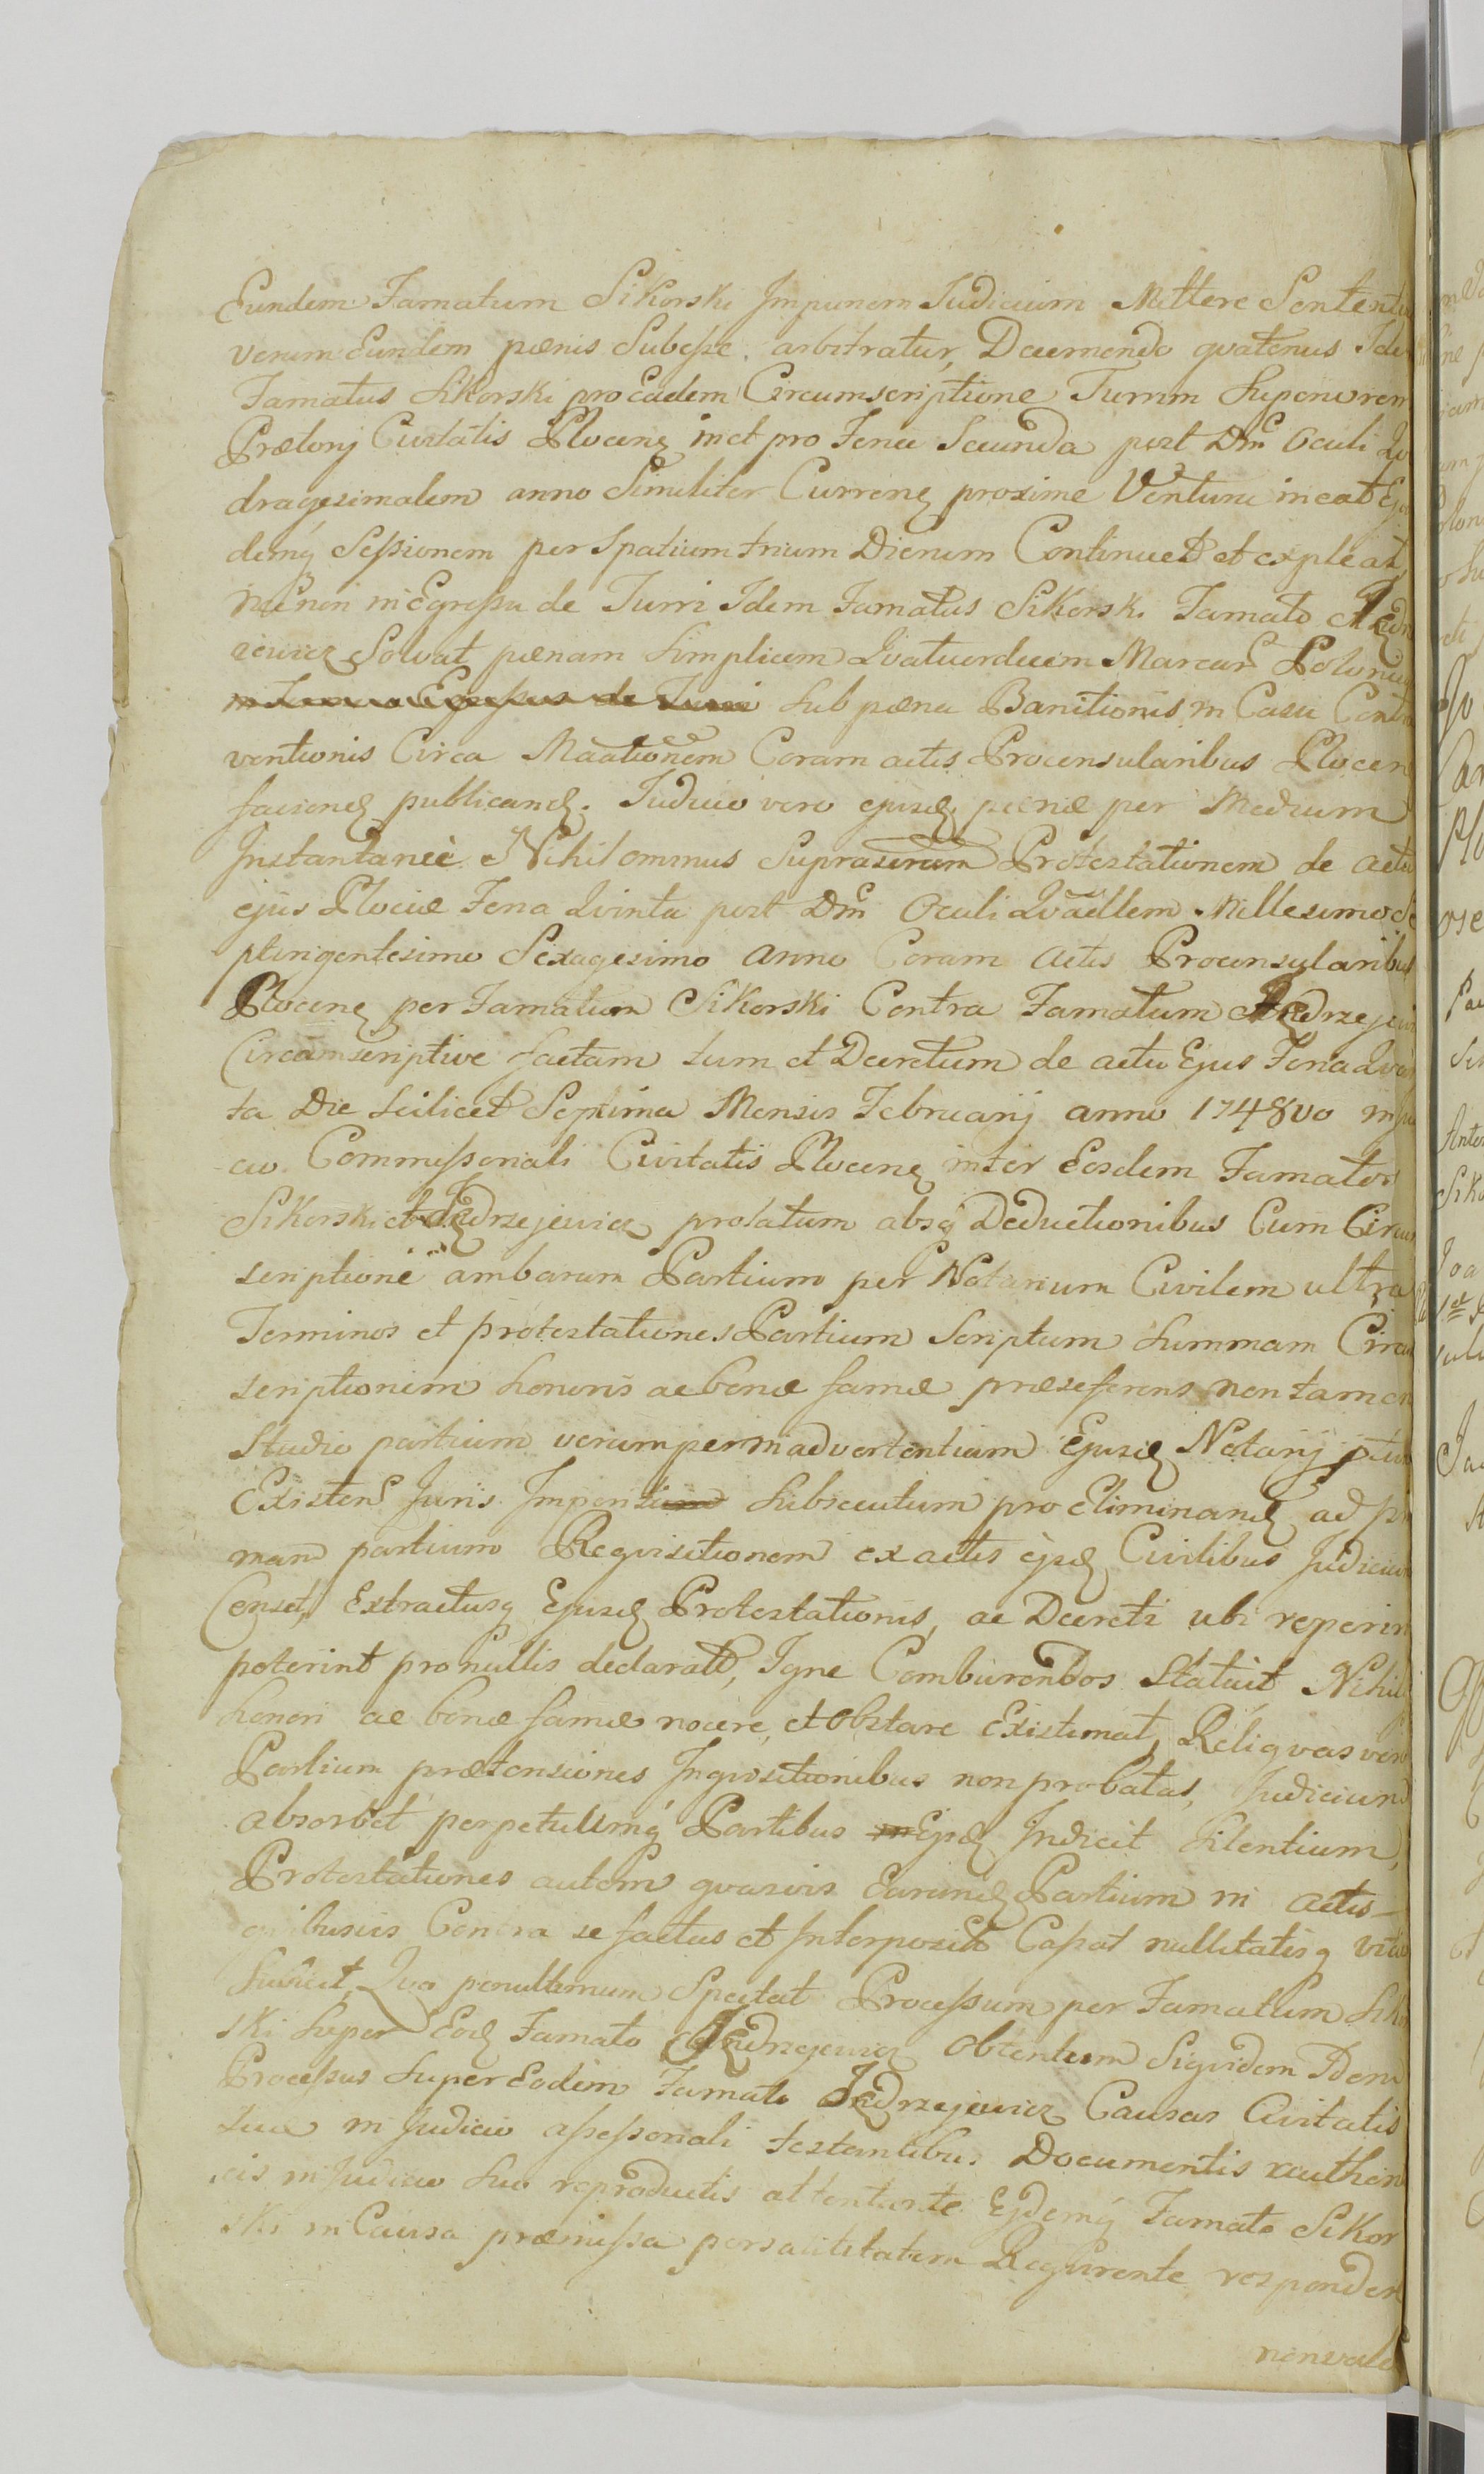 Eundem Famatum Sikorski Impunem Judicium Mittere Sententia
verum Eundem pœnis Subesse arbitratur, Decernendo qvatenus Idem
Famatus Sikorski pro Eadem Circumscriptione Turrim Superiorem
Prætorij Civitatis Plocen in et pro Feria Secunda post Dnm Oculi Qva
dragesimalem anno Similiter Curren proxime Ventura ineat Ejus
demq Sessionem per Spatium trium Dierum Continuet et expleat,
nec non in Egressu de Turri Idem Famatus Sikorski Famato Jędrze
iewicz Solvat pœnam Simplicem Qvatuordecim Marcar Polonic
in Egressus de Turri Sub pœna Banitionis in Casu Contra
ventionis Circa Mąationem Coram actis Proconsularibus Plocen
facien publicand. Judicio vero ejusd pœnæ per Medium
Instantanee Nihilominus Suprascriptam Protestationem de actu
ejus Plociæ Feria Qvinta post Dnm Oculi Qvadllem Millesimo Se
ptingentesimo Sexagesimo anno Coram actis Proconsularibus
Plocen per Famatum Sikorski Contra Famatum Jędrzejewi
Circumscriptive factam tum et Decretum de actu Ejus Feria Qvar
ta Die Scilicet Septima Mensis Februarij anno 1748vo in Judi
cio Commissoriali Civitatis Plocen inter Eosdem Famatos
Sikorski et Jędrzejewicz prolatum absq Deductionibus Cum Circum
scriptione ambarum Partium per Notarium Civilem ultra
Terminos et protestationes Partium Scriptum Summam Circum
scriptionem honoris ac bonæ famæ præseferens non tamen
Studio partium verum per inadvertentiam Ejusd Notarij
Existen Juris Subsecutum pro Eliminand ad pri
mam partium Reqvisitionem ex actis ejusd Civilibus Judicium
Censet, Extractusq Ejusd Protestationis, ac Decreti ubi reperiri
poterint pro nullis declarat, Igne Comburendos Statuit Nihil
honori ac bonæ famæ nocere, et Obstare Existimat, Reliqvas vero
Partium prætensiones Inqvisitionibus non probatas, Judicium
absorbet perpetuumq Partibus in Ejsd Indicit Silentium,
Protestationes autem qvasvis Earund Partium in actis
qvibusvis Contra se factas et Interposit Cassat nullitatisq vitio
Subijcit, Qvo penultimum Spectat Processum per Famatum Siko
ski Super Eod Famato Jędrzejewicz Obtentum Siqvidem Idem
Processus Super Eodem Famato Jędrzejewicz Causas Civitatis
suæ in Judicio assessoriali testantibus Documentis authen
cis in Judicio Suo reproductis attentante Ejdemq Famato Sikor
ski in Causa præmissa personalitatem Reqvirente responder
non vale